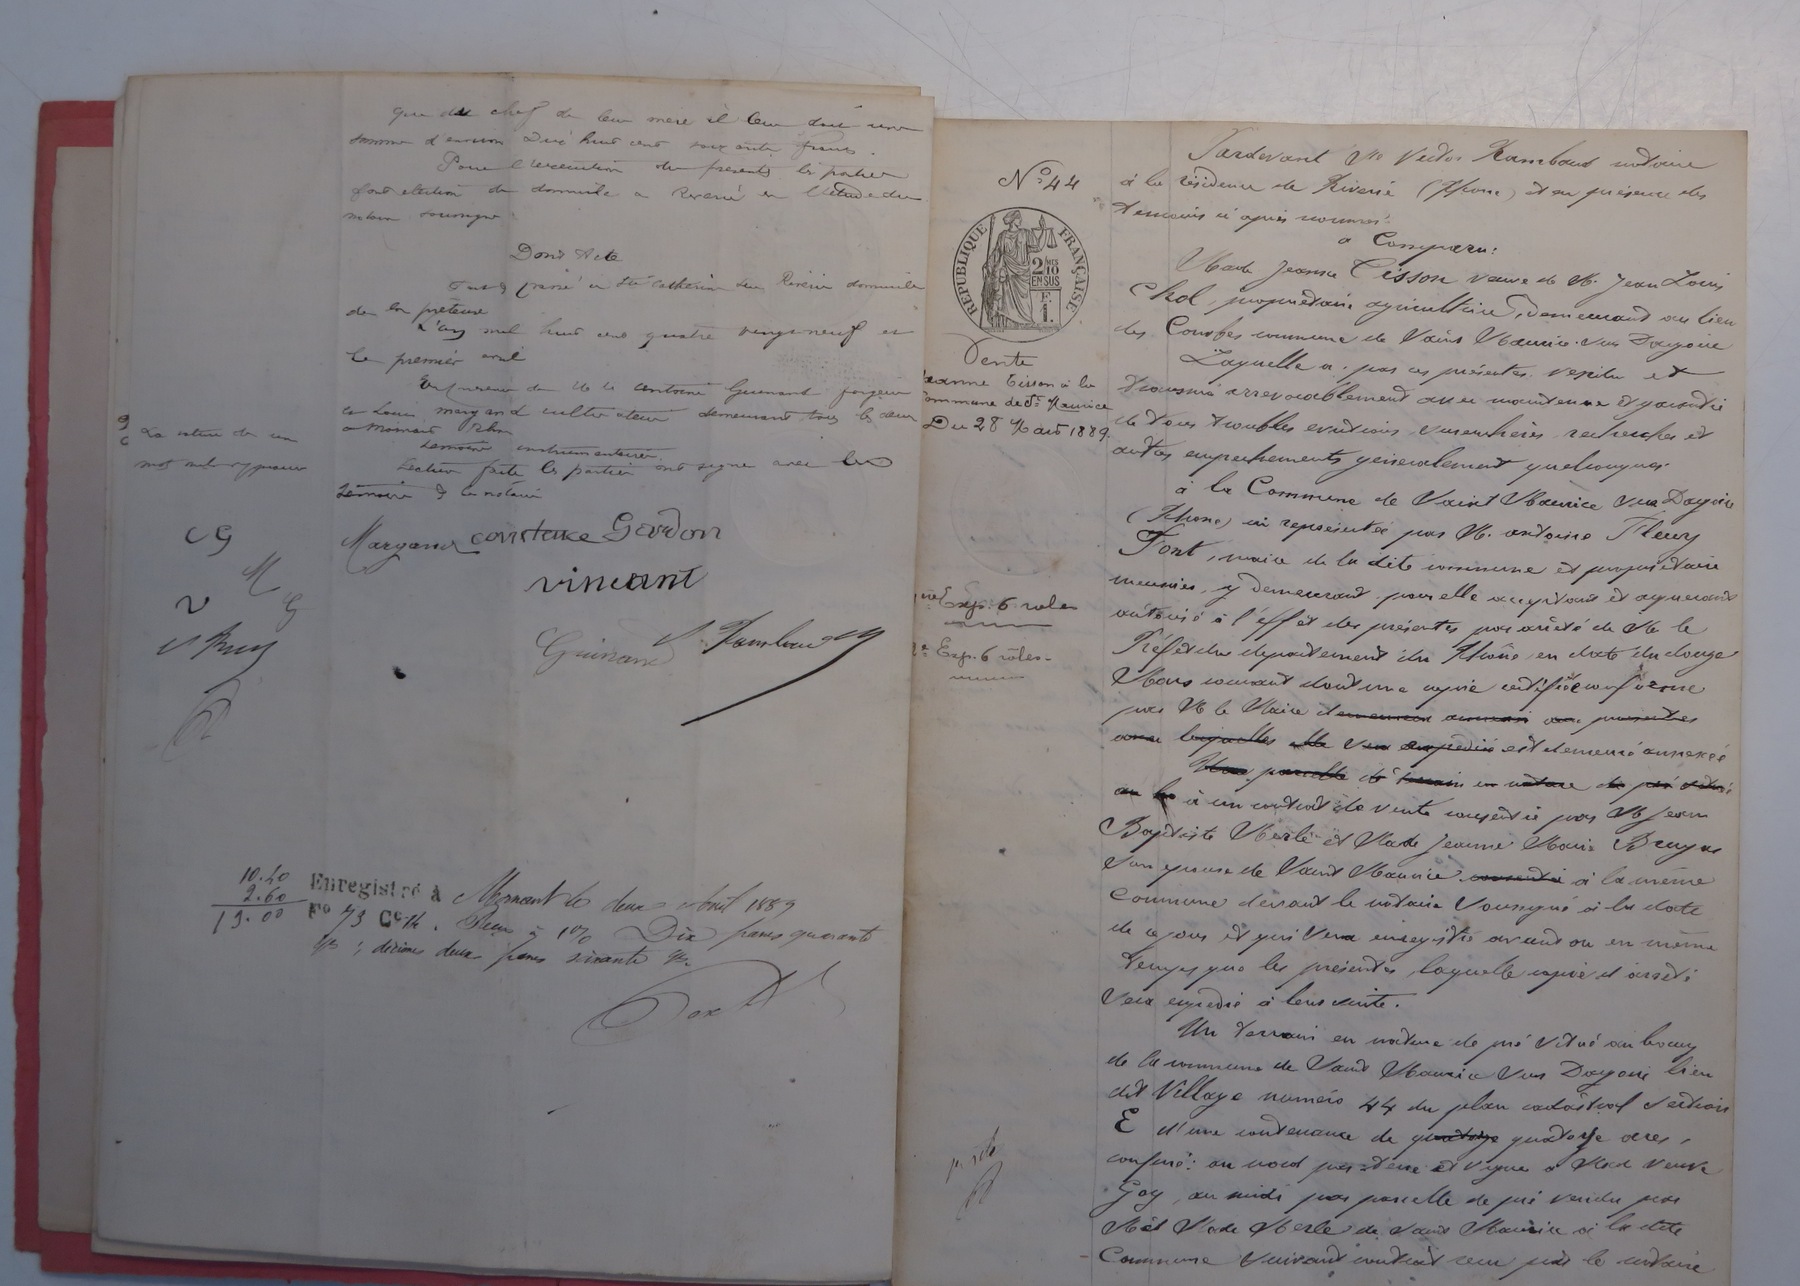 que du chef de leur mère il leur doit une
somme d'environ Dix huit cent soixante francs.
Pour l'exécution des présentes les parties
font élection de domicile à Riverie en l'étude du
notaire soussigné
Dont Acte
Fait & passé à Ste Catherine sur Riverie domicile
de la prêteuse
L'an mil huit cent quatre vingt neuf et
le premier avril
En présence de MM. Antoine Guinand forgeur
et Louis Margand cultivateur demeurant tous les deux
à Mornant Rhône
témoins instrumentaires.
Lecture faite les parties ont signé avec les
témoins & le notaire
La rature de un
mot nul approuvée
CG
M
G
V
Margand constance Gerdon
vincent
Guinand V. Rambaud
10.40
2.60
13.00
Enregistré à Mornant le deux Avril 1889
Fo 73 Ce 14. Reçu à 1% Dix francs quarante
c. ; décimes deux francs soixante c.
No 44
RÉPUBLIQUE FRANÇAISE
2/10
EN SUS
F.
1.
Vente
Jeanne Tisson à la
Commune de St Maurice
Du 28 Mars 1889.
1re Exp. 6 rôles
2e Exp. 6 rôles.
Pardevant Me Victor Rambaud notaire
à la résidence de Riverie (Rhône) et en présence des
témoins ci après nommés:
a Comparu:
Made Jeanne Tisson veuve de M. Jean Louis
Chol, propriétaire agricultrice, demeurant au lieu
des Combes commune de Saint Maurice sur Dargoire
Laquelle a par ces présentes vendu et
transmis irrévocablement avec maintenue et garantie
de tous troubles évictions, surenchères, recherches et
autres empêchements généralement quelconques
à la Commune de Saint Maurice sur Dargoire
(Rhône) ici représentée par M. Antoine Fleury
Font, maire de la dite commune et propriétaire
meunier, y demeurant, pour elle acceptant et acquérant
autorisé à l'effet des présentes par arrêté de M le
Préfet du département du Rhône en date du douze
Mars courant dont une copie certifiée conforme
par M le Maire demeurera annexée aux présentes
avec lesquelles elle sera expédiée est demeurée annexée
Une parcelle de terrain en nature de pré située
au à un contrat de vente consentie par M Jean
Baptiste Merle et Made Jeanne Marie Bruyas
son épouse de Saint Maurice consentie à la même
Commune devant le notaire soussigné à la date
de ce jour et qui sera enregistré avant ou en même
temps que les présentes, laquelle copie d'arrêté
sera expédié à leur suite.
Un terrain en nature de pré situé au bourg
de la commune de Saint Maurice sur Dargoire lieu
dit Village numéro 44 du plan cadastral section
E d'une contenance de quatorze quatorze ares,
confiné: au nord par terre et vigne à Made Veuve
Goy, au midi par parcelle de pré vendu par
M et Made Merle de Saint Maurice à la dite
Commune suivant contrat reçu par le notaire